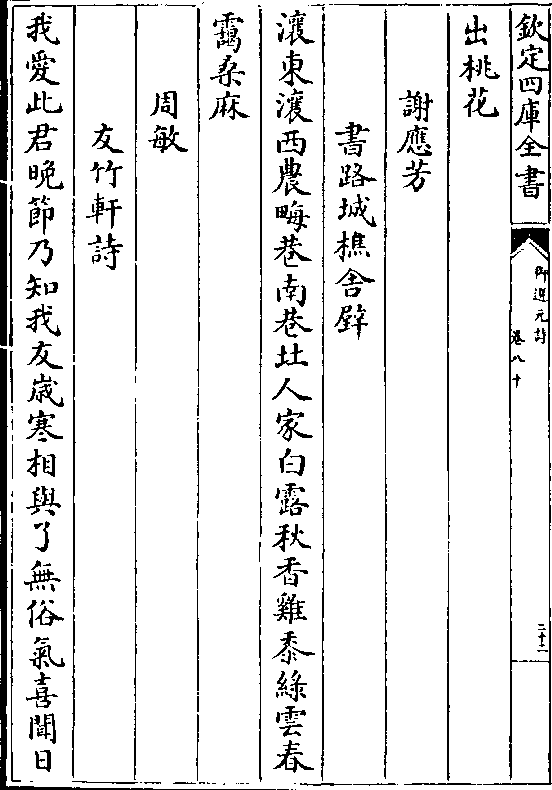 欽定四庫全書
御選元詩
卷八十
二十二
出桃花
謝應芳
書路城樵舍壁
瀼東瀼西農畮巷南巷北人家白露秋香雞黍綠雲春
靄桑麻
周敏
友竹軒詩
我愛此君晚節乃知我友歲寒相與了無俗氣喜聞日